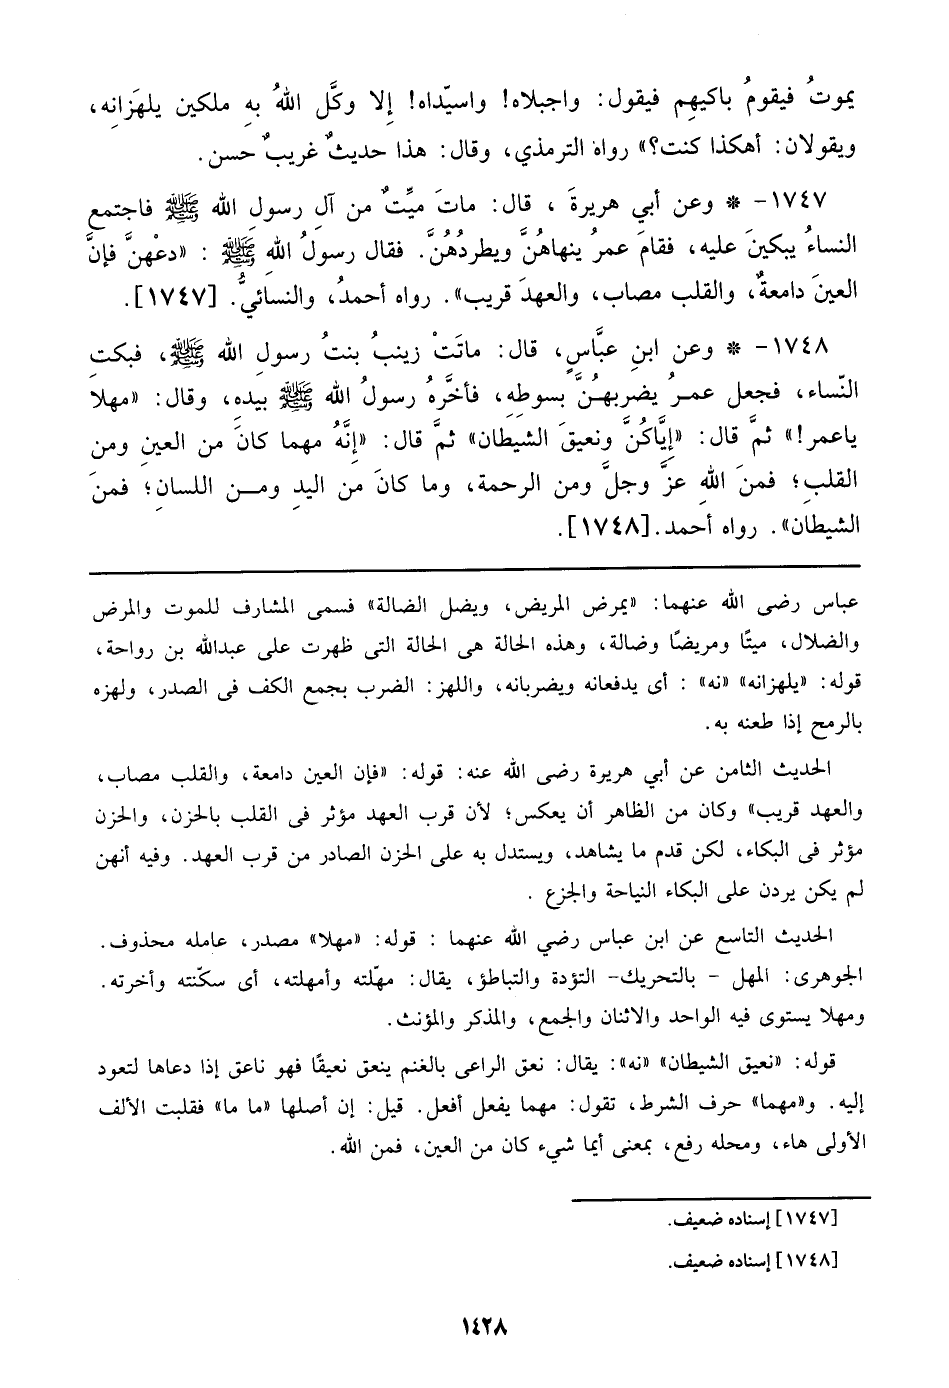 يموتُ فيقومُ باكيهِم فيقول: واجبلاه! واسيّداه! إلا وكَّل اللهُ بهِ ملكين يلهَزانِه،
ويقولان: أهكذا كنت؟» رواه الترمذي، وقال: هذا حديثٌ غريبٌ حسن.
١٧٤٧- * وعن أبي هريرةَ ، قال: ماتَ ميِّتٌ من آلِ رسولِ الله ﷺ فاجتمع
النساءُ يبكينَ عليه، فقامَ عمرُ ينهاهُنَّ ويطردُهُنَّ. فقال رسولُ اللهِ ﷺ : «دعْهنَّ فإنَّ
العينَ دامعةٌ، والقلب مصاب، والعهدَ قريب». رواه أحمدُ، والنسائيُّ. [١٧٤٧].
١٧٤٨- * وعن ابنِ عبَّاسٍ، قال: ماتَتْ زينبُ بنتُ رسولِ الله ﷺ، فبكتِ
النّساء، فجعل عمرُ يضربهُنَّ بسوطِهِ، فأخَّرهُ رسولُ الله ﷺ بيده، وقال: «مهلا
ياعمر!» ثمَّ قال: «إِيَّاكُنَّ ونعيقَ الشيطان» ثمَّ قال: «إنَّهُ مهما كانَ من العينِ ومن
القلبِ؛ فمنَ اللهِ عزَّ وجلَّ ومن الرحمة، وما كانَ من اليدِ ومن اللسانِ؛ فمنَ
الشيطان». رواه أحمد.[١٧٤٨].
عباس رضى الله عنهما: «يمرض المريض، ويضل الضالة» فسمى المشارف للموت والمرض
والضلال، ميتًا ومريضًا وضالة، وهذه الحالة هى الحالة التى ظهرت على عبدالله بن رواحة،
قوله: «يلهزانه» «نه» : أى يدفعانه ويضربانه، واللهز: الضرب بجمع الكف فى الصدر، ولهزه
بالرمح إذا طعنه به.
الحديث الثامن عن أبي هريرة رضى الله عنه: قوله: «فإن العين دامعة، والقلب مصاب،
والعهد قريب» وكان من الظاهر أن يعكس؛ لأن قرب العهد مؤثر فى القلب بالحزن، والحزن
مؤثر فى البكاء، لكن قدم ما يشاهد، ويستدل به على الحزن الصادر من قرب العهد. وفيه أنهن
لم يكن يردن على البكاء النياحة والجزع .
الحديث التاسع عن ابن عباس رضي الله عنهما : قوله: «مهلا» مصدر، عامله محذوف.
الجوهرى: المهل - بالتحريك- التؤدة والتباطؤ، يقال: مهلّته وأمهلته، أى سكّنته وأخرته.
ومهلا يستوى فيه الواحد والاثنان والجمع، والمذكر والمؤنث.
قوله: «نعيق الشيطان» «نه»: يقال: نعق الراعى بالغنم ينعق نعيقًا فهو ناعق إذا دعاها لتعود
إليه. و«مهما» حرف الشرط، تقول: مهما يفعل أفعل. قيل: إن أصلها «ما ما» فقلبت الألف
الأولى هاء، ومحله رفع، بمعنى أيما شيء كان من العين، فمن الله.
[١٧٤٧] إسناده ضعيف.
[١٧٤٨] إسناده ضعيف.
١٤٢٨